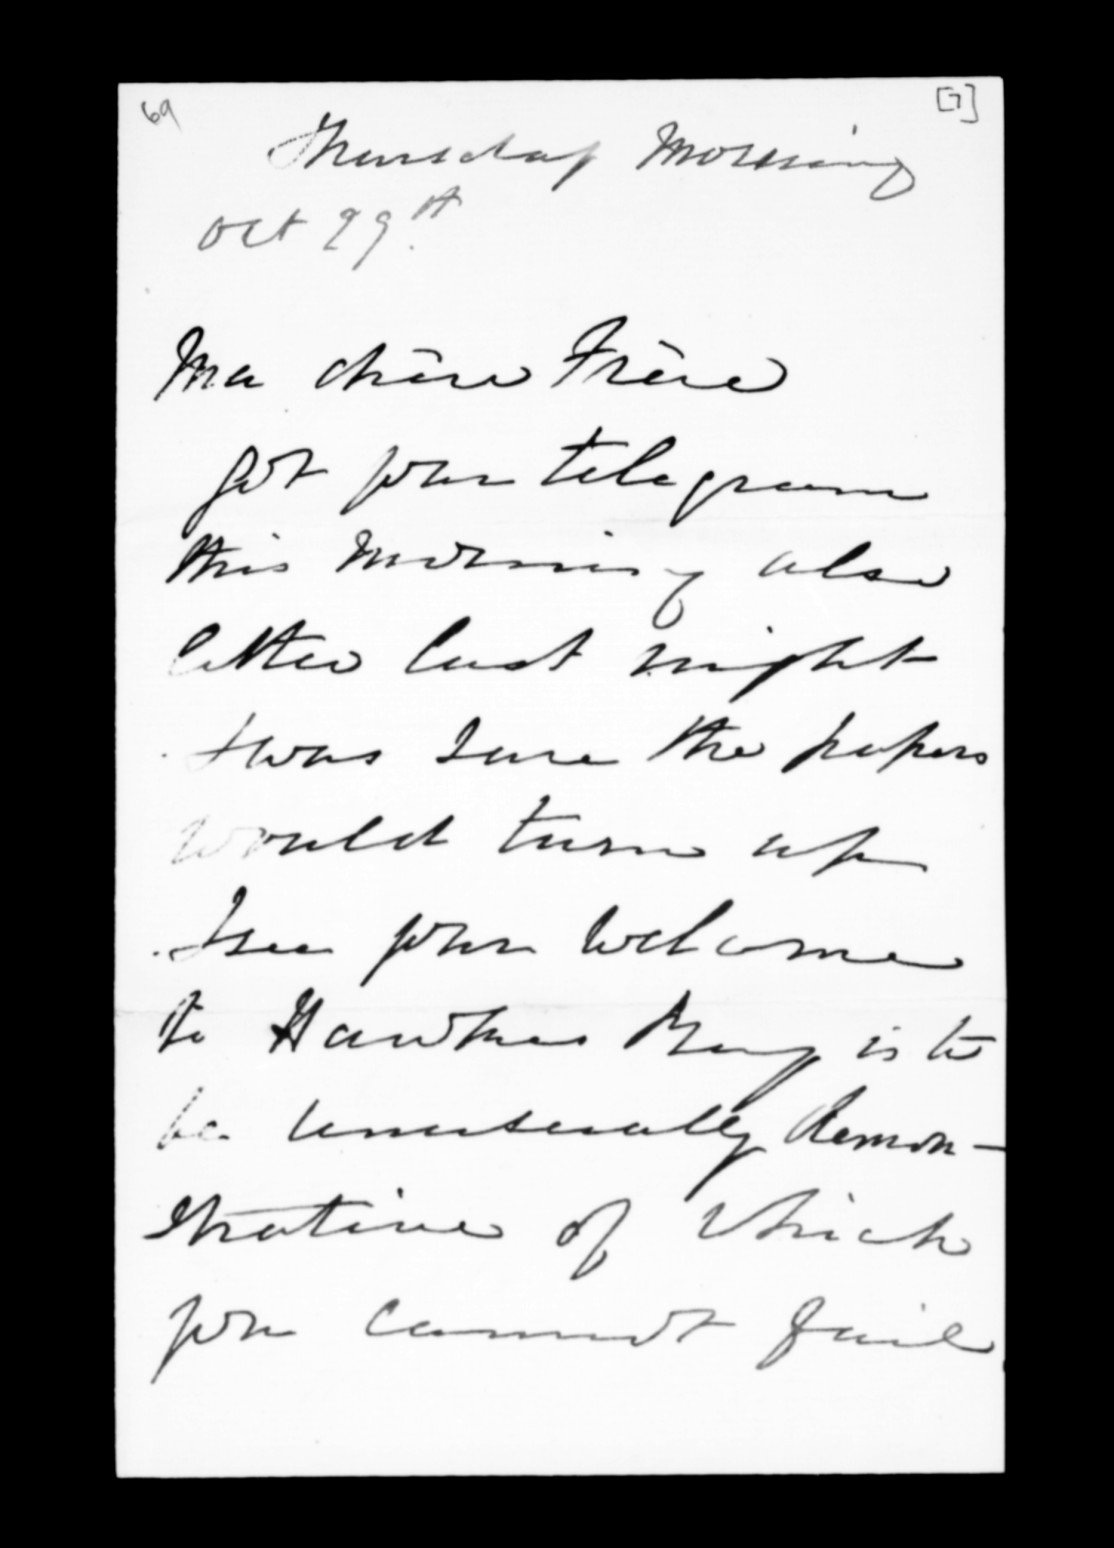 69
[7]
Thursday Morning
Oct 29th
Ma chère Frère
got your telegram
this morning also
letter last night
I was sure the papers
would turn up
I see your welcome
to Hawkes Bay is to
be unusually demon-
strative of which
you cannot fail